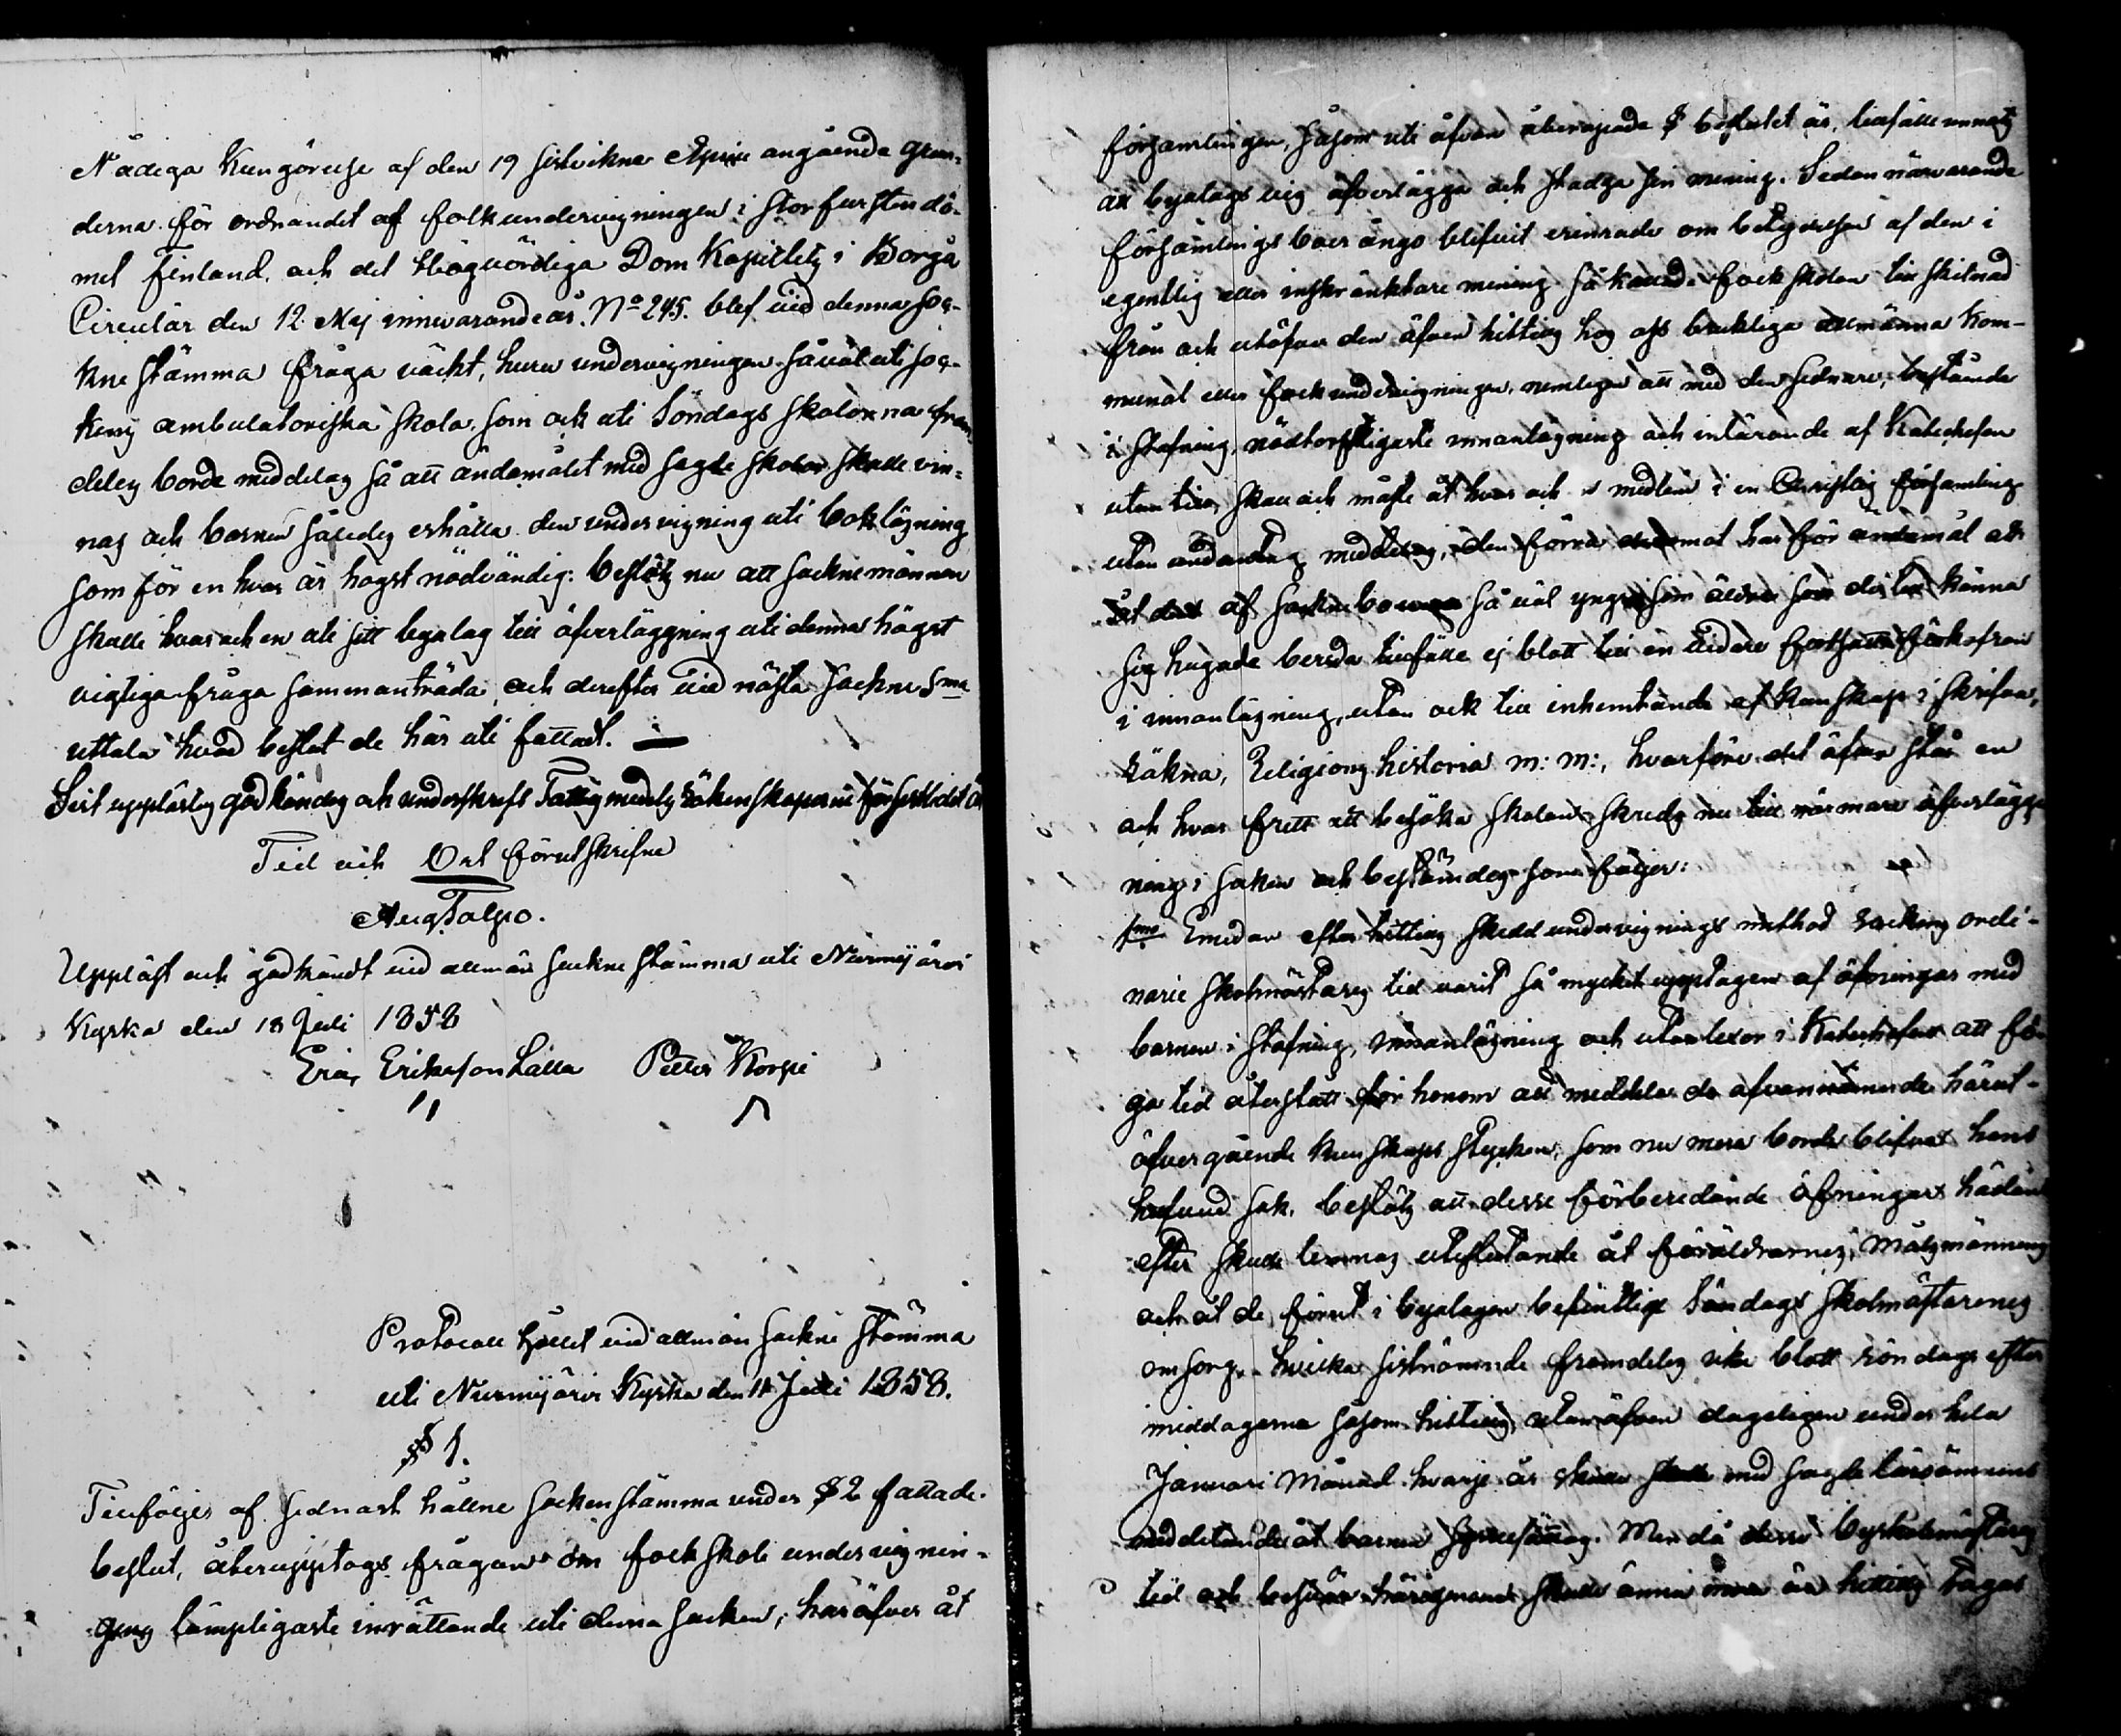 Nådiga Kungörelse af den 19 sistvikne April angående grun-
derna för ordnandet af folkundervisningen i Storfurstendö-
met Finland, och det Högvördiga Dom Kapitlets i Borgå
Circulär den 12 Maj innevarande år, No 245. blef vid denna soc-
kne stämma fråga väckt, huru undervisningen såväl uti soc-
kens ambulatoriska skola som ock uti Söndags skolorna fram-
deles borde meddelas så att ändamålet med sagde skolor skulle vin-
nas och barnen således erhålla den undervisning uti bokläsning
som för en hvar är högst nödvändig: beslöts nu att sockne männen
skulle hvar och en uti sitt byalag till öfverläggning uti denna högst
vigtiga fråga sammanträda, och derefter vid nästa Sockne Sma
uttala hvad beslut de här uti fattat. —
Sist upplästes godkändes och underskrefs Fattigmedels Räkenskaperne för sistl. det år
Tid och Ort förutskrifne
Aug Talpo.
Uppläst och godkändt vid allmän Sockne stämma uti Nurmijärvi
Kyrka den 18 Juli 1858
Eric Eriksson Lalla Petter Korpi
Protocoll hållet vid allmän Sockne stämma
uti Nurmijärvi Kyrka den 11 Juli 1858.
§ 1.
Tillföljes af sednast hållne Sockenstämma under § 2 fattade
beslut, återupptogs frågan om folkskole undervisnin-
gens lämpligaste inrättande uti denna Socken, häröfver åt
församlingen, såsom uti åfvan åberopade § beslutet är, tillfälle unnats
att byalags vis öfverlägga och stadga sin mening. Sedan närvarande
församlingsboer ånyo blifvit erinrade om betydelsen af den i
egentlig eller inskränktare mening så kallade folkskolan till skilnad
från och utöfver den äfven hittills hos oss brukliga allmänna Kom-
munal eller folkundervisningen, nemligen att med den sednare, bestående
i stafning, nödtorftigaste innanläsning och inlärande af Katechesen
utan till, skall och måste åt hvar och medlem i en Christlig församling
utan undantag meddelas, den förra har för ändamål att
åt dem af Socknebor så väl yngre som äldre som der till känna
sig hugade bereda tillfälle ej blott till en vidare fortsatt förkofran
i innanläsning, utan ock till inhemtande af kunskap i skrifva,
räkna, Religions historia m: m:, hvarföre det äfven står en
och hvar fritt att besöka skolan, skreds nu till närmare öfverlägg-
ning i saken och bestämdes som följer:
1mo Emedan efter hittills skedd undervisnings method Sockens ordi-
narie Skolmästares tid varit så mycket upptagen af öfningar med
barnen i stafning, innanläsning och utanlexor i Katechesen att fö-
ga tid återstått för honom att meddela de ofvannämnde härut-
öfver gående kunskaps stycken, som nu mera borde blifva hans
hufvud sak, beslöts att desse förberedande öfningar hädan
efter skulle lemnas uteslutande åt föräldrarnes, målsmännens
och åt de förut i byalagen befintlige Söndags skolmästarenes
omsorg, hvilka sistnämnde framdeles icke blott söndags efter
middagarna såsom hittills, utan äfven dageligen under hela
Januari Månad hvarje år skulle med sagde läroämnens
meddelande åt barnen sysselsättas. Men då desse byskolmästares
tid och besvär härigenom skulle ännu mera än hittills tagas